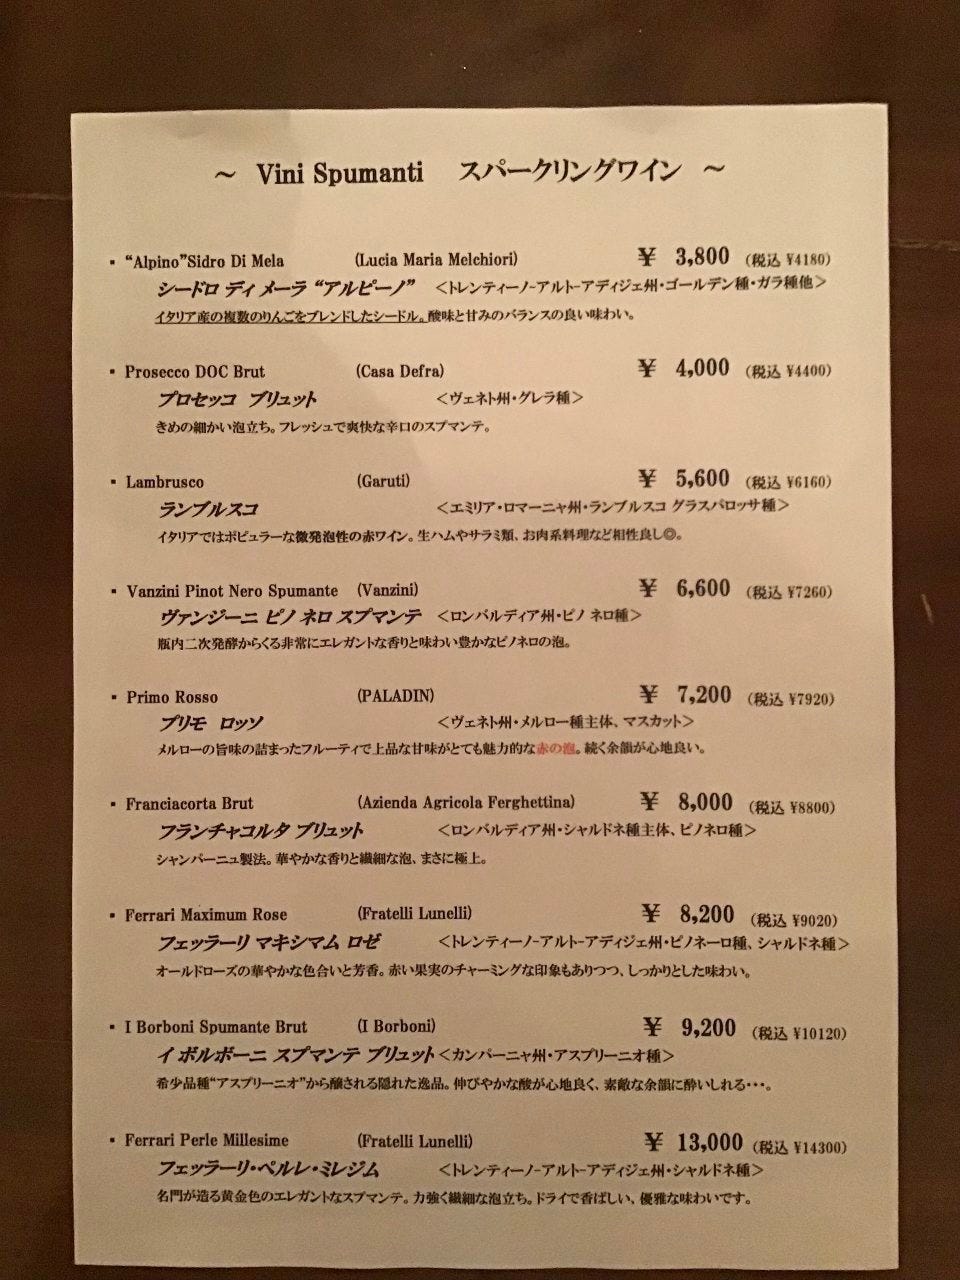 ～ Vini Spumanti スパークリングワイン ～
▪ “Alpino”Sidro Di Mela (Lucia Maria Melchiori) ￥ 3,800 (税込 ¥4180)
シードロ ディ メーラ “アルピーノ” ＜トレンティーノ-アルト-アディジェ州・ゴールデン種・ガラ種他＞
イタリア産の複数のりんごをブレンドしたシードル。酸味と甘みのバランスの良い味わい。
▪ Prosecco DOC Brut (Casa Defra) ￥ 4,000 (税込 ¥4400)
プロセッコ ブリュット ＜ヴェネト州・グレラ種＞
きめの細かい泡立ち。フレッシュで爽快な辛口のスプマンテ。
▪ Lambrusco (Garuti) ￥ 5,600 (税込 ¥6160)
ランブルスコ ＜エミリア・ロマーニャ州・ランブルスコ グラスパロッサ種＞
イタリアではポピュラーな微発泡性の赤ワイン。生ハムやサラミ類、お肉系料理など相性良し◎。
▪ Vanzini Pinot Nero Spumante (Vanzini) ￥ 6,600 (税込 ¥7260)
ヴァンジーニ ピノ ネロ スプマンテ ＜ロンバルディア州・ピノ ネロ種＞
瓶内二次発酵からくる非常にエレガントな香りと味わい豊かなピノネロの泡。
▪ Primo Rosso (PALADIN) ￥ 7,200 (税込 ¥7920)
プリモ ロッソ ＜ヴェネト州・メルロー種主体、マスカット＞
メルローの旨味の詰まったフルーティで上品な甘味がとても魅力的な赤の泡。続く余韻が心地良い。
▪ Franciacorta Brut (Azienda Agricola Ferghettina) ￥ 8,000 (税込 ¥8800)
フランチャコルタ ブリュット ＜ロンバルディア州・シャルドネ種主体、ピノネロ種＞
シャンパーニュ製法。華やかな香りと繊細な泡、まさに極上。
▪ Ferrari Maximum Rose (Fratelli Lunelli) ￥ 8,200 (税込 ¥9020)
フェッラーリ マキシマム ロゼ ＜トレンティーノ-アルト-アディジェ州・ピノネーロ種、シャルドネ種＞
オールドローズの華やかな色合いと芳香。赤い果実のチャーミングな印象もありつつ、しっかりとした味わい。
▪ I Borboni Spumante Brut (I Borboni) ￥ 9,200 (税込 ¥10120)
イ ボルボーニ スプマンテ ブリュット ＜カンパーニャ州・アスプリーニオ種＞
希少品種“アスプリーニオ”から醸される隠れた逸品。伸びやかな酸が心地良く、素敵な余韻に酔いしれる・・・。
▪ Ferrari Perle Millesime (Fratelli Lunelli) ￥ 13,000 (税込 ¥14300)
フェッラーリ・ペルレ・ミレジム ＜トレンティーノ-アルト-アディジェ州・シャルドネ種＞
名門が造る黄金色のエレガントなスプマンテ。力強く繊細な泡立ち。ドライで香ばしい、優雅な味わいです。